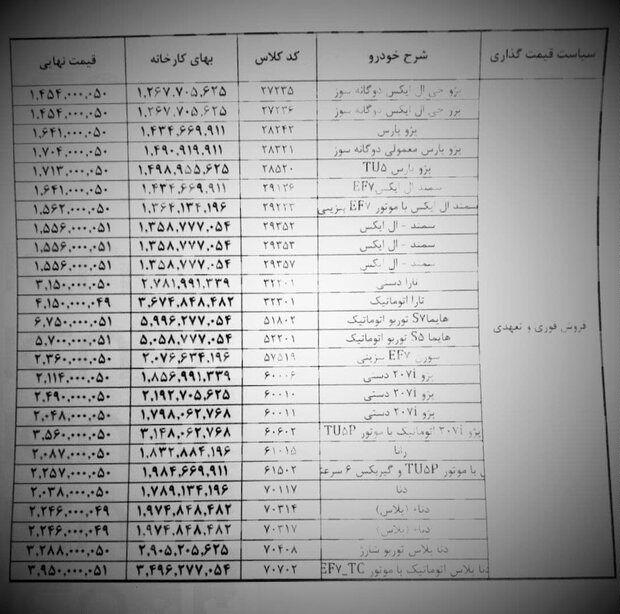 سیاست قیمت گذاری	شرح خودرو	کد کلاس	بهای کارخانه	قیمت نهایی
فروش فوری و تعهدی
پژو جی ال ایکس دوگانه سوز	۲۷۲۳۵	۱,۲۶۷,۷۰۵,۶۲۵	۱,۴۵۴,۰۰۰,۰۵۰
پژو جی ال ایکس دوگانه سوز	۲۷۲۳۶	۱,۲۶۷,۷۰۵,۶۲۵	۱,۴۵۴,۰۰۰,۰۵۰
پژو پارس	۲۸۲۴۲	۱,۴۳۴,۶۶۹,۹۱۱	۱,۶۴۱,۰۰۰,۰۵۰
پژو پارس معمولی دوگانه سوز	۲۸۳۲۱	۱,۴۹۰,۹۱۹,۹۱۱	۱,۷۰۴,۰۰۰,۰۵۰
پژو پارس TU۵	۲۸۵۲۰	۱,۴۹۸,۹۵۵,۶۲۵	۱,۷۱۳,۰۰۰,۰۵۰
سمند ال ایکس EF۷	۲۹۱۲۶	۱,۴۳۴,۶۶۹,۹۱۱	۱,۶۴۱,۰۰۰,۰۵۰
سمند ال ایکس با موتور EF۷ بنزینی	۲۹۲۲۳	۱,۳۶۴,۱۳۴,۱۹۶	۱,۵۶۲,۰۰۰,۰۵۰
سمند - ال ایکس	۲۹۳۵۲	۱,۳۵۸,۷۷۷,۰۵۴	۱,۵۵۶,۰۰۰,۰۵۱
سمند - ال ایکس	۲۹۳۵۳	۱,۳۵۸,۷۷۷,۰۵۴	۱,۵۵۶,۰۰۰,۰۵۱
سمند - ال ایکس	۲۹۳۵۷	۱,۳۵۸,۷۷۷,۰۵۴	۱,۵۵۶,۰۰۰,۰۵۱
تارا دستی	۳۲۲۰۱	۲,۷۸۱,۹۹۱,۳۳۹	۳,۱۵۰,۰۰۰,۰۵۰
تارا اتوماتیک	۳۲۳۰۱	۳,۶۷۴,۸۴۸,۴۸۲	۴,۱۵۰,۰۰۰,۰۴۹
هایما S۷ توربو اتوماتیک	۵۱۸۰۲	۵,۹۹۶,۲۷۷,۰۵۴	۶,۷۵۰,۰۰۰,۰۵۱
هایما S۵ توربو اتوماتیک	۵۲۲۰۱	۵,۰۵۸,۷۷۷,۰۵۴	۵,۷۰۰,۰۰۰,۰۵۱
سورن EF۷ بنزینی	۵۷۵۱۹	۲,۰۷۶,۶۳۴,۱۹۶	۲,۳۶۰,۰۰۰,۰۵۰
پژو ۲۰۷i دستی	۶۰۰۰۶	۱,۸۵۶,۹۹۱,۳۳۹	۲,۱۱۴,۰۰۰,۰۵۰
پژو ۲۰۷i دستی	۶۰۰۱۰	۲,۱۹۲,۷۰۵,۶۲۵	۲,۴۹۰,۰۰۰,۰۵۰
پژو ۲۰۷i دستی	۶۰۰۱۱	۱,۷۹۸,۰۶۲,۷۶۸	۲,۰۴۸,۰۰۰,۰۵۰
پژو ۲۰۷i اتوماتیک با موتور TU۵P	۶۰۶۰۲	۳,۱۴۸,۰۶۲,۷۶۸	۳,۵۶۰,۰۰۰,۰۵۰
رانا	۶۱۰۱۵	۱,۸۳۲,۸۸۴,۱۹۶	۲,۰۸۷,۰۰۰,۰۵۰
با موتور TU۵P و گیربکس ۶ سرعته	۶۱۵۰۲	۱,۹۸۴,۶۶۹,۹۱۱	۲,۲۵۷,۰۰۰,۰۵۰
دنا	۷۰۱۱۷	۱,۷۸۹,۱۳۴,۱۹۶	۲,۰۳۸,۰۰۰,۰۵۰
دنا+ (پلاس)	۷۰۳۱۴	۱,۹۷۴,۸۴۸,۴۸۲	۲,۲۴۶,۰۰۰,۰۴۹
دنا+ (پلاس)	۷۰۳۱۷	۱,۹۷۴,۸۴۸,۴۸۲	۲,۲۴۶,۰۰۰,۰۴۹
دنا پلاس توربو شارژ	۷۰۴۰۸	۲,۹۰۵,۲۰۵,۶۲۵	۳,۲۸۸,۰۰۰,۰۵۰
دنا پلاس اتوماتیک با موتور EF۷_TC	۷۰۷۰۲	۳,۴۹۶,۲۷۷,۰۵۴	۳,۹۵۰,۰۰۰,۰۵۱